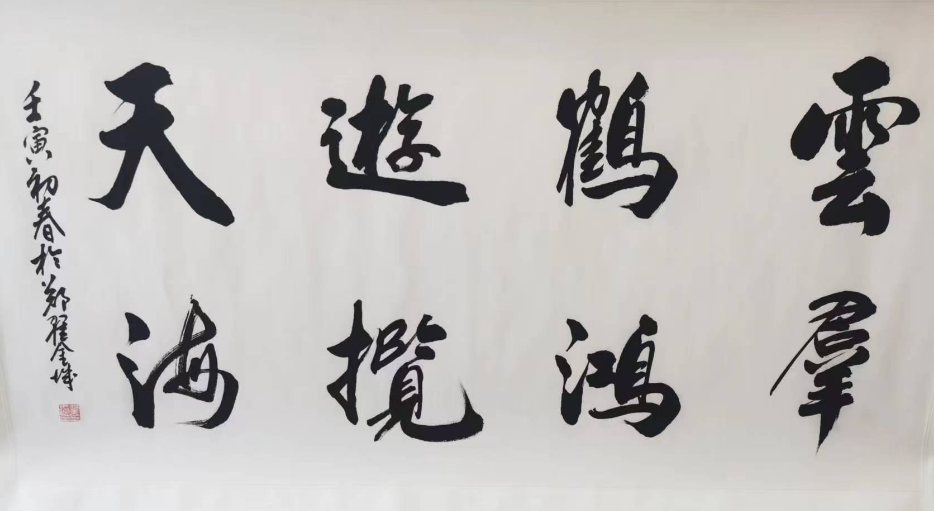 雲鶴遊天
羣鴻攬海
壬寅初春於鄭金城